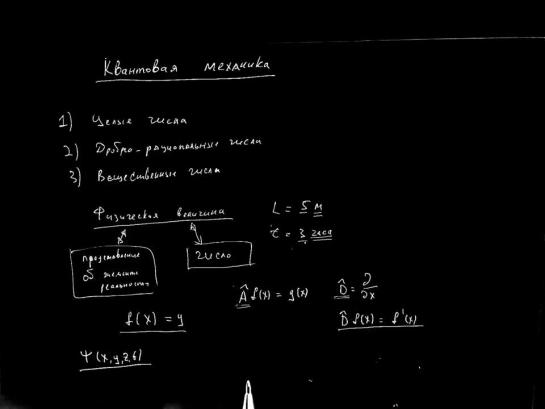 Квантовая механика
1) Целые числа
2) Дробно-рациональные числа
3) Вещественные числа
Физическая величина
L = 5 м
t = 3 часа
представление
об элементе
реальности
число
Â f(x) = g(x)
D̂ = ∂/∂x
f(x) = y
D̂ f(x) = f'(x)
Ψ(x,y,z,t)